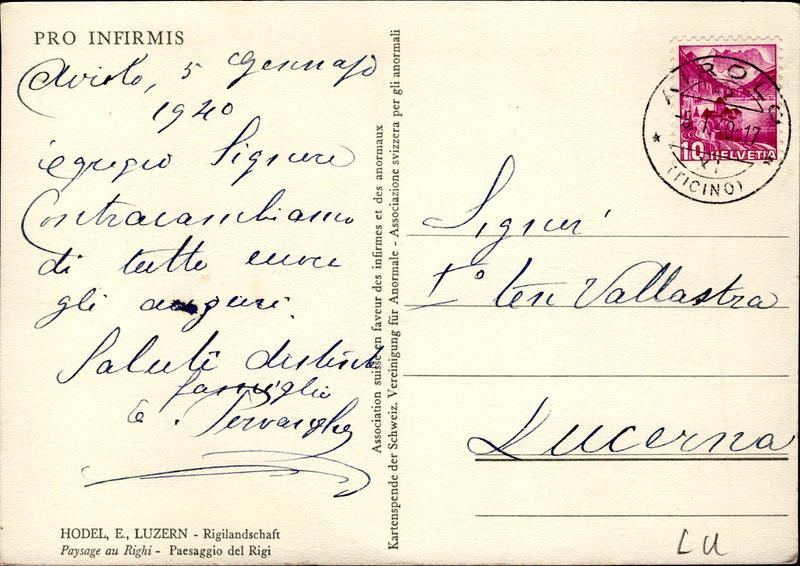 PRO INFIRMIS
5 Gennajo
1940
egregio Signore
Contracambiamo
di tutto cuore
gli auguri.
Saluti distinti
famiglia
Association suisse en faveur des infirmes et des anormaux
Kartenspende der Schweiz. Vereinigung für Anormale - Associazione svizzera per gli anormali
AIROLO
(TICINO)
10 HELVETIA
Signor
I° ten Vallastra
Lucerna
LU
HODEL, E., LUZERN - Rigilandschaft
Paysage au Righi - Paesaggio del Rigi